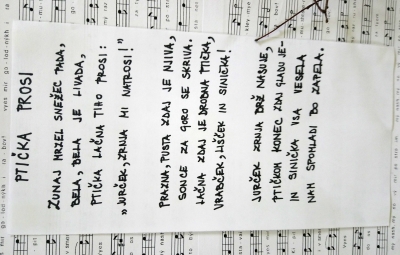 PTIČKA PROSI
ZUNAJ MRZEL SNEŽEC PADA,
BELA, BELA JE LIVADA,
PTIČKA LAČNA TIHO PROSI:
"JURČEK, ZRNJA MI NATROSI!"
PRAZNA, PUSTA ZDAJ JE NJIVA,
SONCE ZA GORO SE SKRIVA.
LAČNA ZDAJ JE DROBNA PTIČKA,
VRABČEK, LIŠČEK IN SINIČKA!
JURČEK ZRNJA BRŽ NASUJE,
PTIČKOM KONEC ZDAJ GLADU JE-
IN SINIČKA VSA VESELA
NAM SPOMLADI BO ZAPELA.